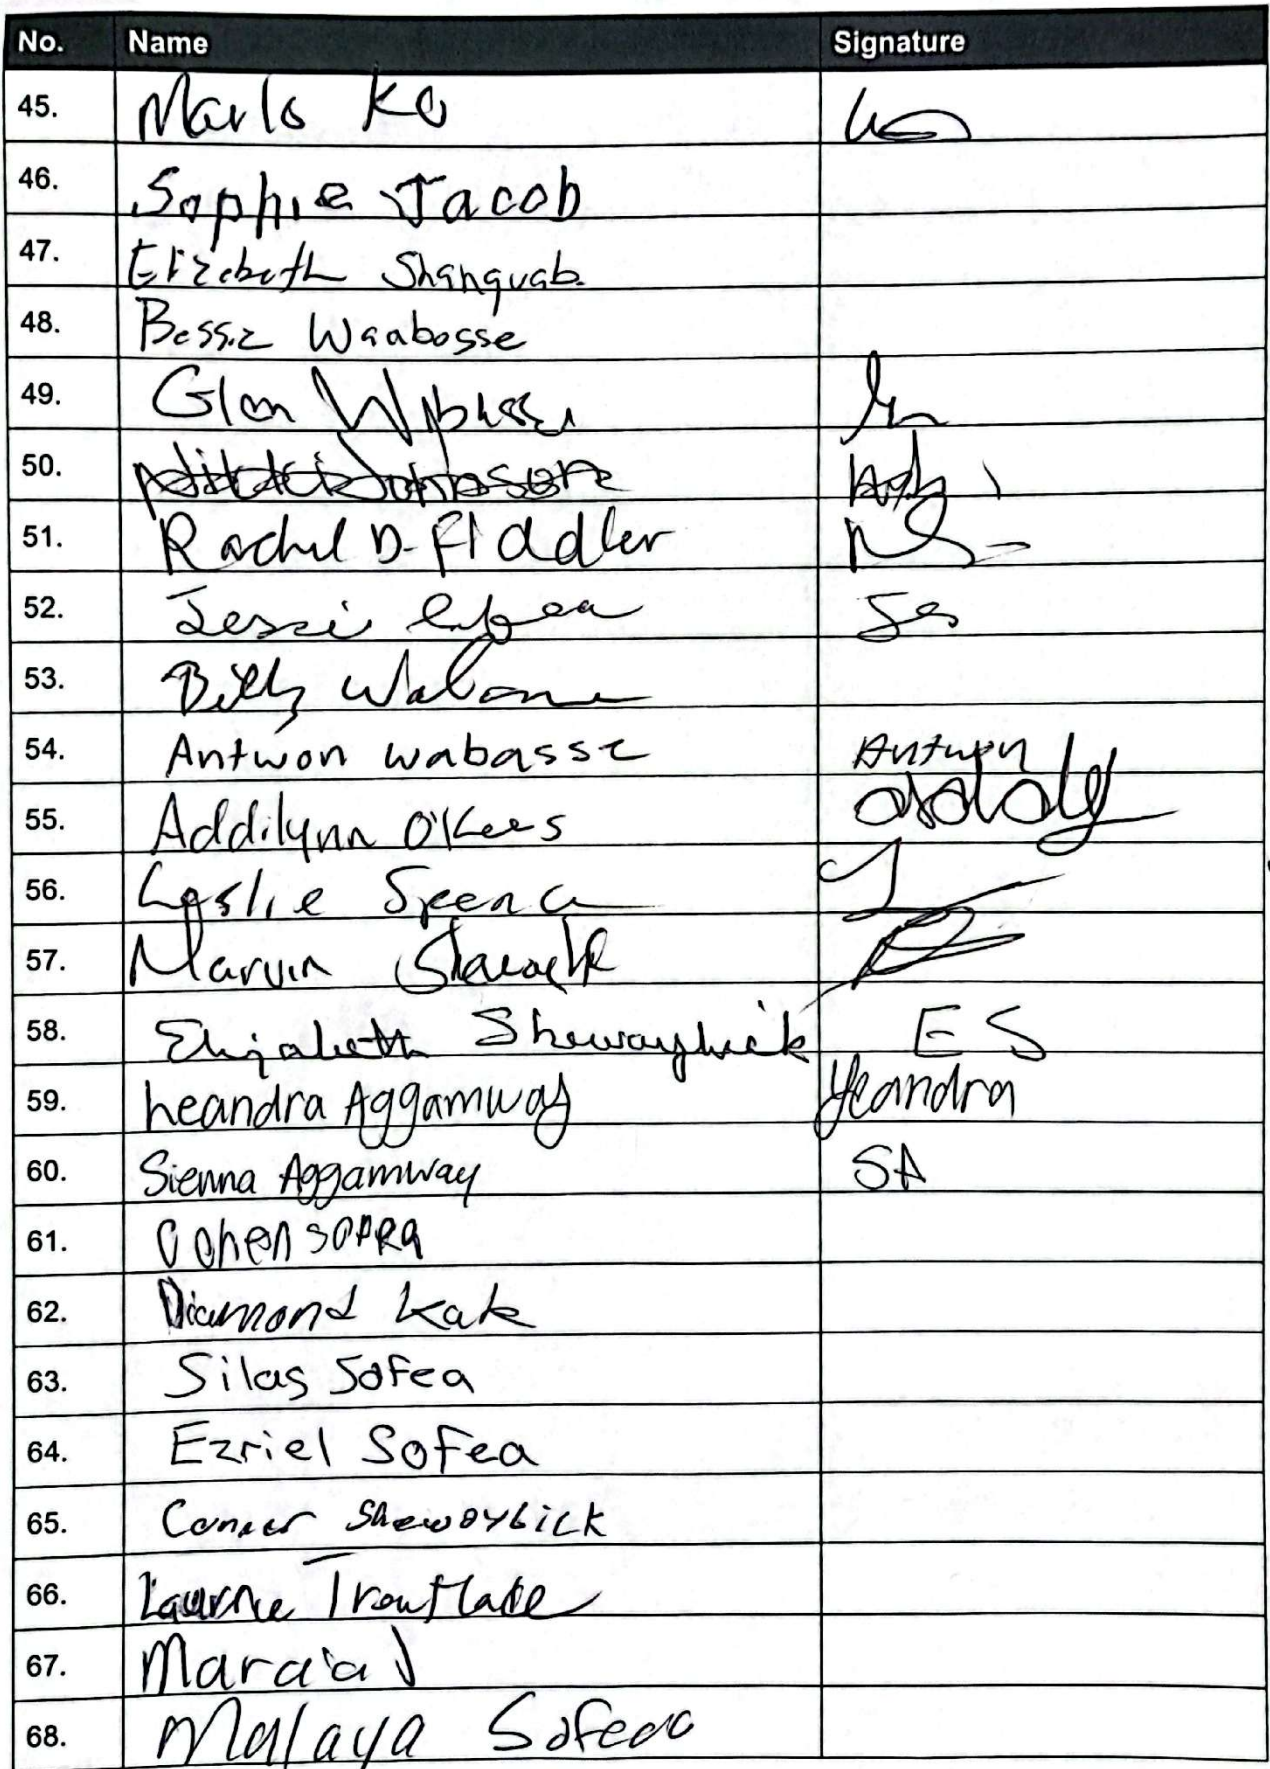 No. Name Signature
45. Marlo Ko
46. Sophie Jacob
47. Elizebeth Shanquab
48. Bessie Waabosse
49. Glen
50.
51. Rachel D. Fiddler
52. Jessie Jes
53. Billy
54. Antwon wabasse Antwon
55. Addilynn O'Kees
56. Leslie Spence
57. Marvin
58. Elizabeth Shewaybick E S
59. Leandra Aggamway Leandra
60. Sienna Aggamway SA
61. Cohen SOFEA
62. Diamond Kak
63. Silas Sofea
64. Ezriel Sofea
65. Conner Shewaybick
66. Troutlake
67. Marcia J
68. Malaya Sofea